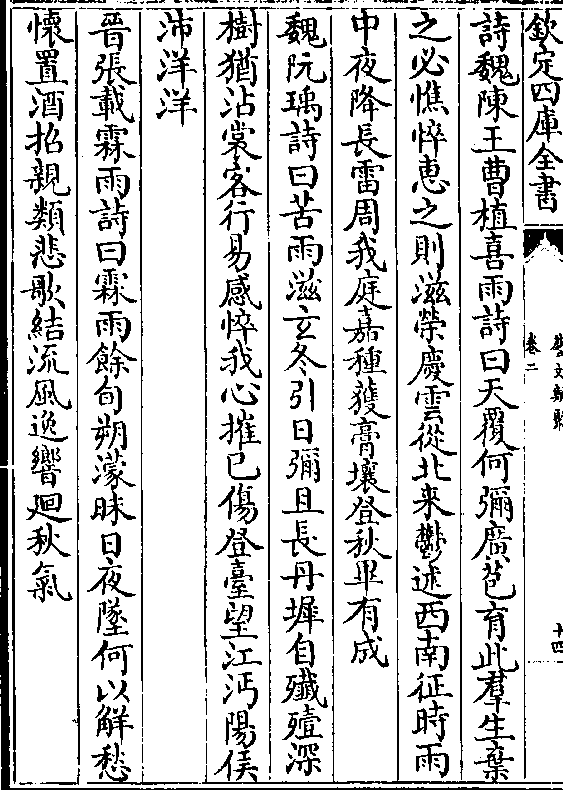 欽定四庫全書
藝文類聚
卷二
十四
詩魏陳王曹植喜雨詩曰天覆何彌廣苞育此羣生棄
之必憔悴惠之則滋榮慶雲從北来鬱述西南征時雨
中夜降長雷周我庭嘉種獲膏壤登秋畢有成
魏阮瑀詩曰苦雨滋玄冬引日彌且長丹墀自殲殪深
樹猶沾裳客行易感悴我心摧已傷登臺望江沔陽侯
沛洋洋
晉張載霖雨詩曰霖雨餘旬朔濛昧日夜墜何以解愁
懷置酒招親類悲歌結流風逸響廻秋氣